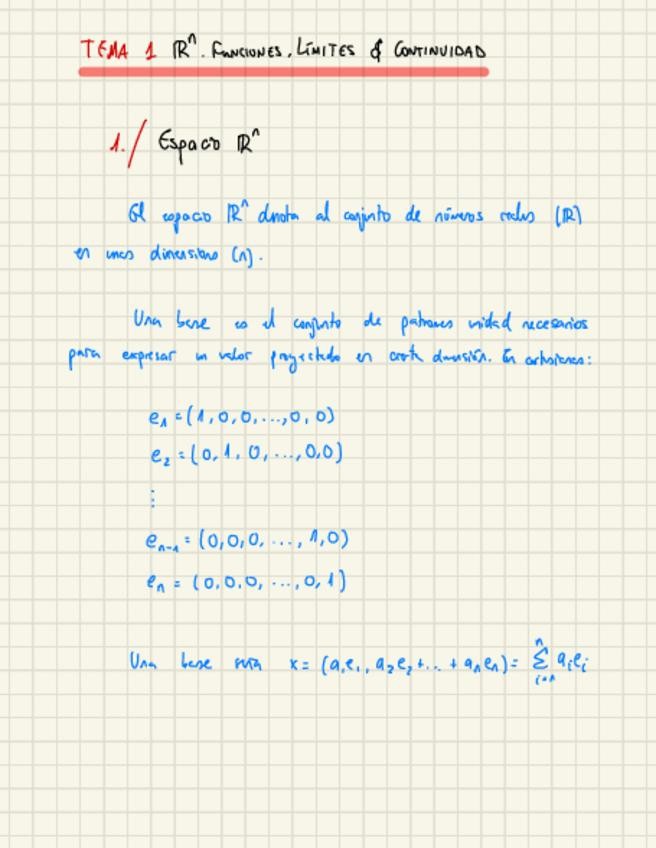 TEMA 1 ℝⁿ. FUNCIONES, LÍMITES & CONTINUIDAD
1./ Espacio ℝⁿ
El espacio ℝⁿ denota al conjunto de números reales (ℝ)
en unas dimensiones (n).
Una base es el conjunto de patrones unidad necesarios
para expresar un valor proyectado en cierta dimensión. En cartesianas:
e₁ = (1,0,0,...,0,0)
e₂ = (0,1,0,...,0,0)
⋮
eₙ₋₁ = (0,0,0,...,1,0)
eₙ = (0,0,0,...,0,1)
Una base sería x = (a₁e₁, a₂e₂+...+aₙeₙ) = ∑ⁿᵢ₌₁ aᵢeᵢ